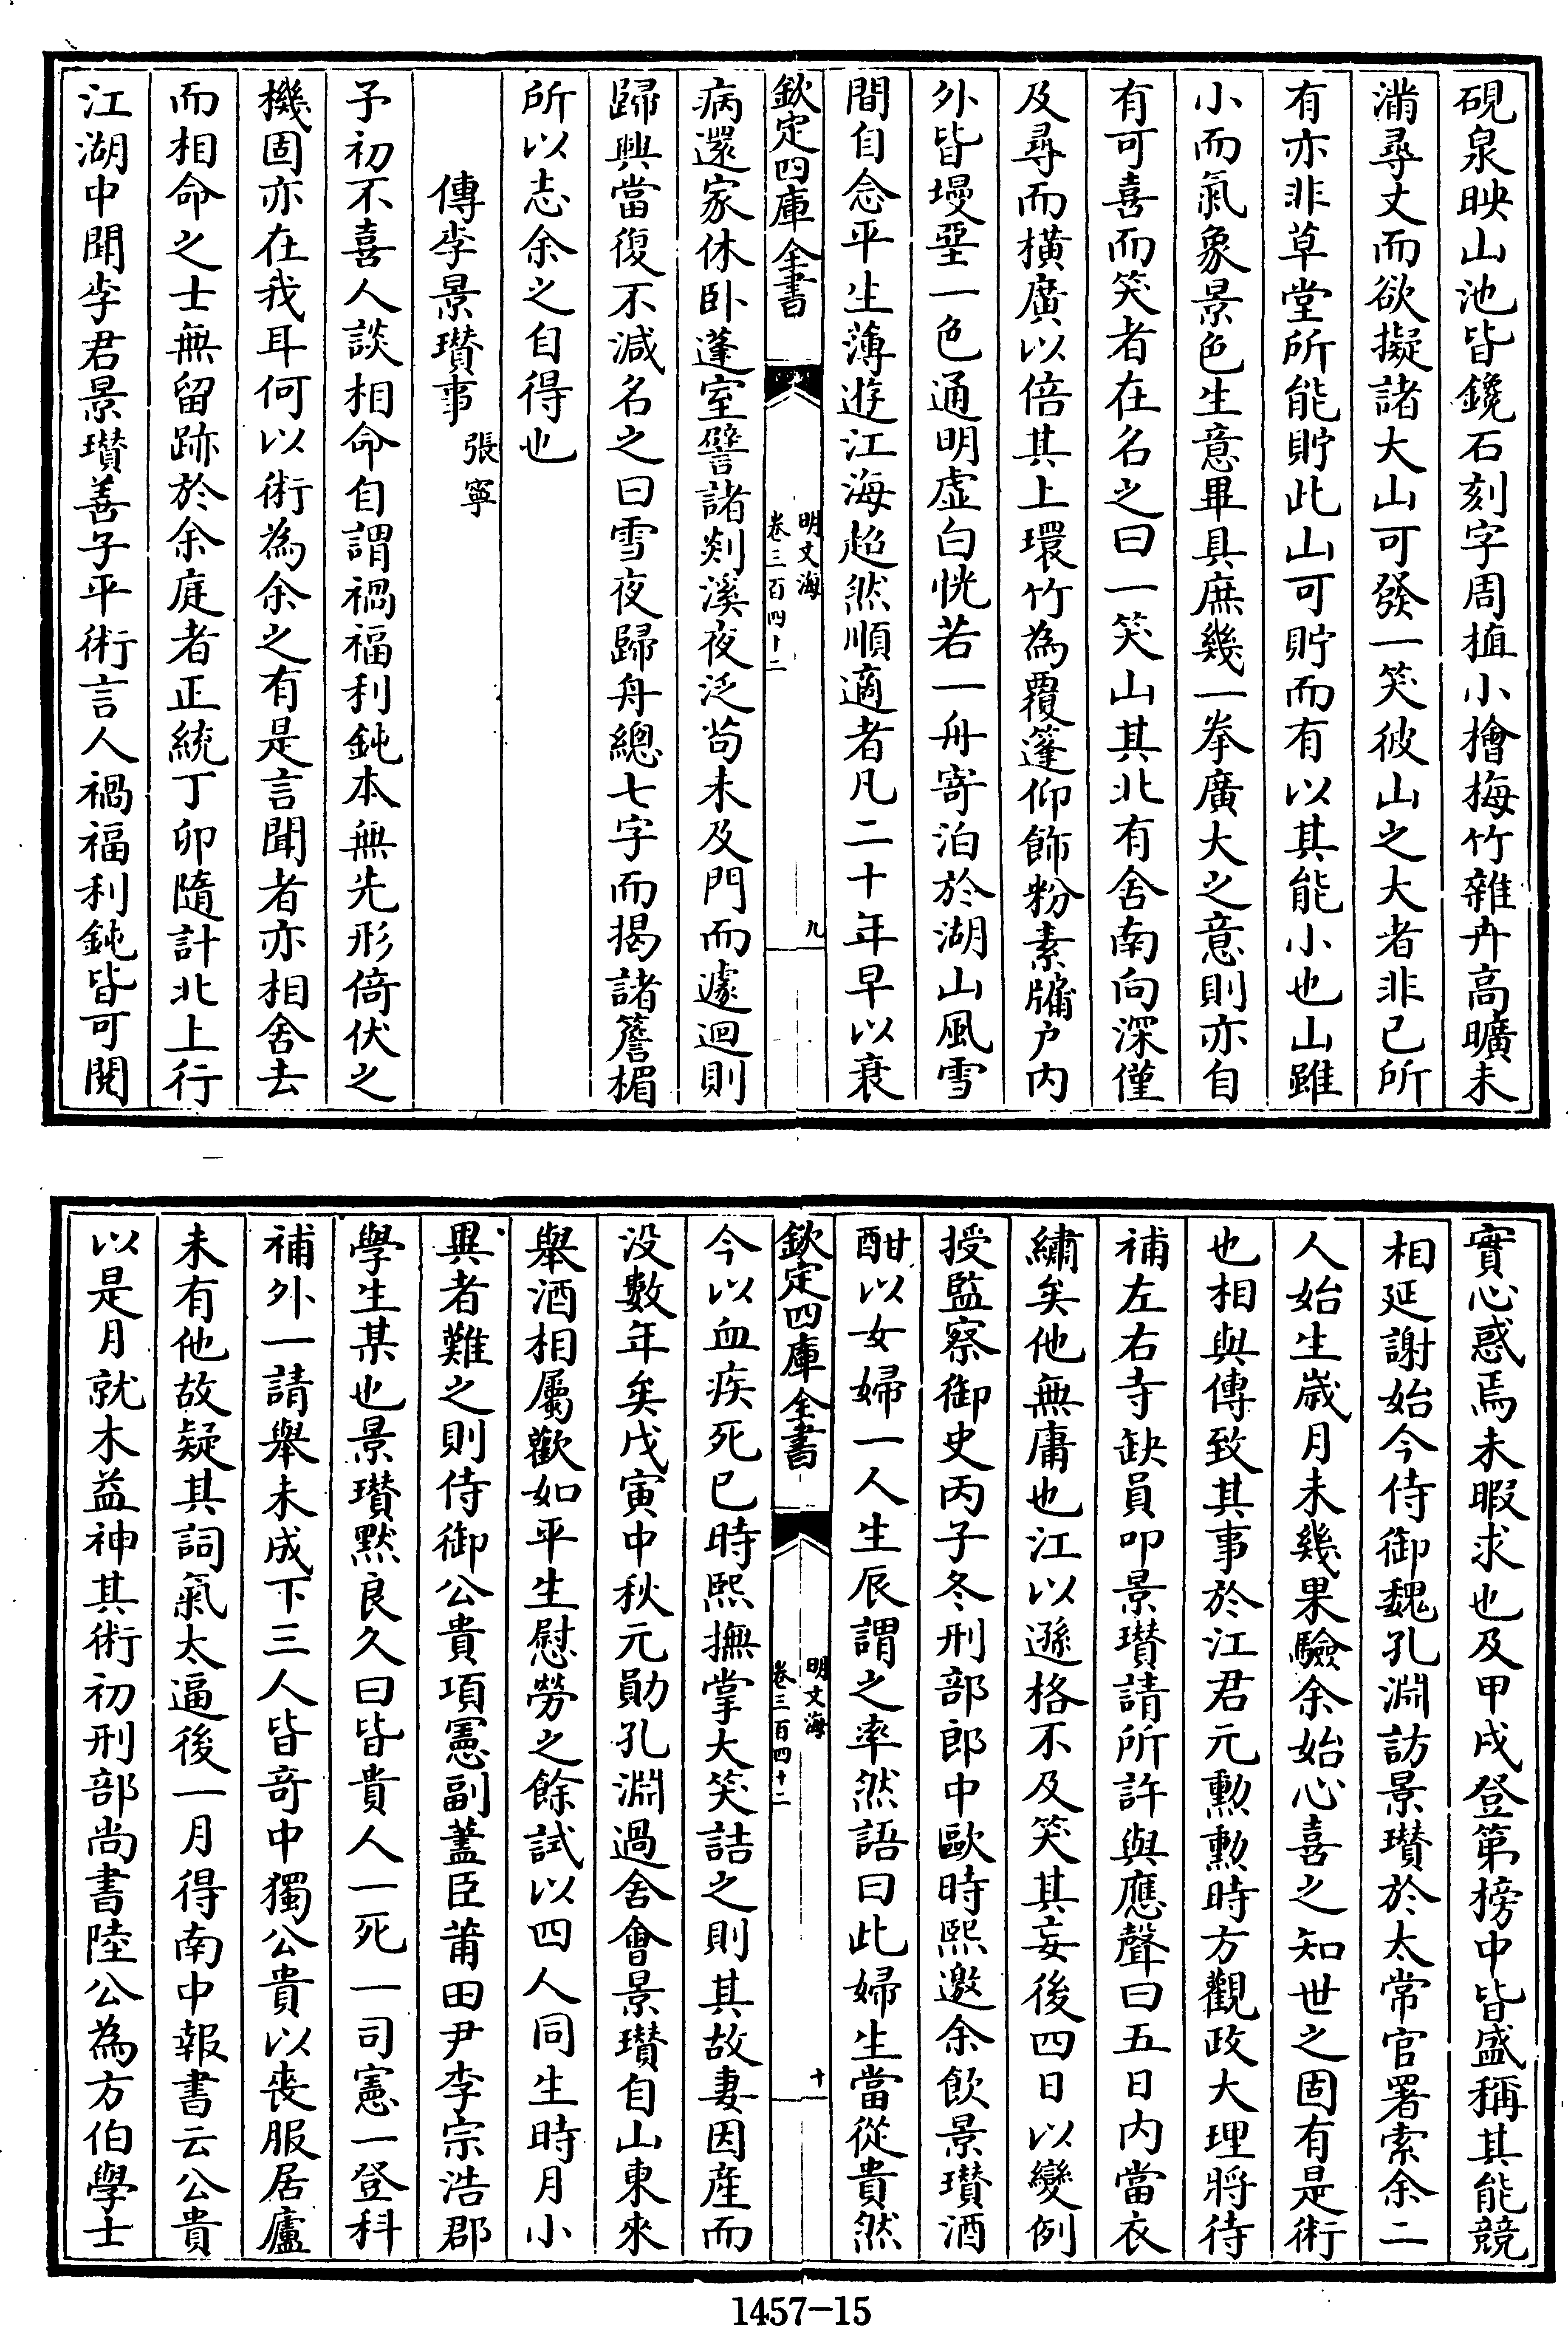 硯泉映山池皆鑱石刻字周植小檜梅竹雜卉高曠未
滿尋丈而欲擬諸大山可發一笑彼山之大者非已所
有亦非草堂所能貯此山可貯而有以其能小也山雖
小而氣象景色生意畢具庶幾一拳廣大之意則亦自
有可喜而笑者在名之曰一笑山其北有舍南向深僅
及尋而橫廣以倍其上環竹為覆篷仰飾粉素牖户内
外皆墁堊一色通明虛白恍若一舟寄泊於湖山風雪
間自念平生薄遊江海超然順適者凡二十年早以衰
欽定四庫全書
明文海
卷三百四十二
九
病還家休卧蓬室譬諸剡溪夜泛茍未及門而遽迴則
歸興當復不減名之曰雪夜歸舟總七字而揭諸簷楣
所以志余之自得也
傳李景瓚事 張寧
予初不喜人談相命自謂禍福利鈍本無先形倚伏之
機固亦在我耳何以術為余之有是言聞者亦相舍去
而相命之士無留跡於余庭者正統丁卯隨計北上行
江湖中聞李君景瓚善子平術言人禍福利鈍皆可閱
實心惑焉未暇求也及甲戌登第榜中皆盛稱其能競
相延謝始今侍御魏孔淵訪景瓚於太常官署索余二
人始生嵗月未幾果驗余始心喜之知世之固有是術
也相與傳致其事於江君元勲勲時方觀政大理將待
補左右寺缺員叩景瓚請所許與應聲曰五日内當衣
繡矣他無庸也江以遜格不及笑其妄後四日以變例
授監察御史丙子冬刑部郎中歐時熙邀余飲景瓚酒
酣以女婦一人生辰謂之率然語曰此婦生當從貴然
欽定四庫全書
明文海
卷三百四十二
十
今以血疾死已時熙撫掌大笑詰之則其故妻因産而
没數年矣戊寅中秋元勛孔淵過舍會景瓚自山東來
舉酒相屬歡如平生慰勞之餘試以四人同生時月小
異者難之則侍御公貴項憲副藎臣莆田尹李宗浩郡
學生某也景瓚黙良久曰皆貴人一死一司憲一登科
補外一請舉未成下三人皆竒中獨公貴以丧服居廬
未有他故疑其詞氣太逼後一月得南中報書云公貴
以是月就木益神其術初刑部尚書陸公為方伯學士
1457-15